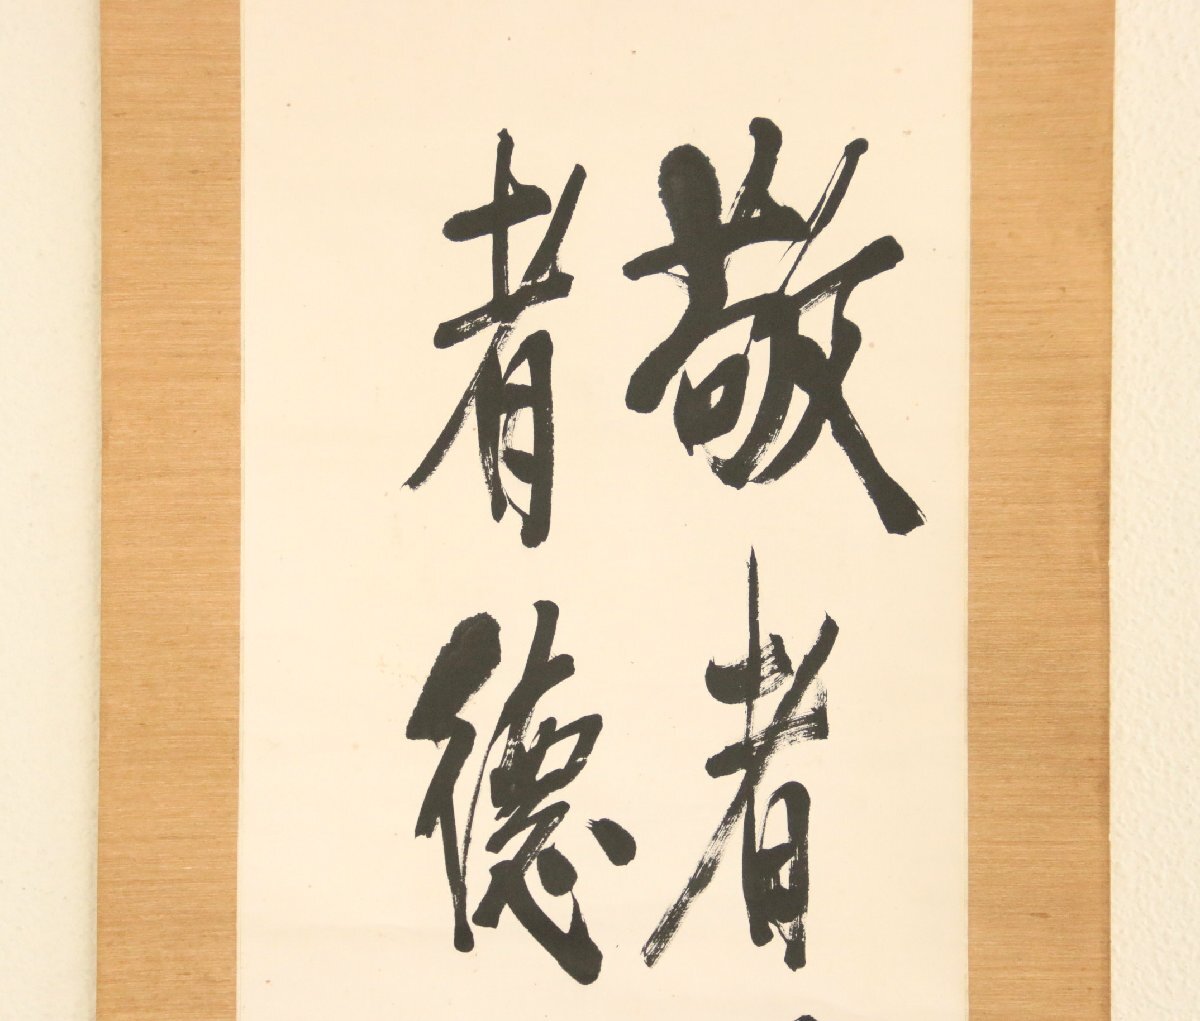 敬者
者德